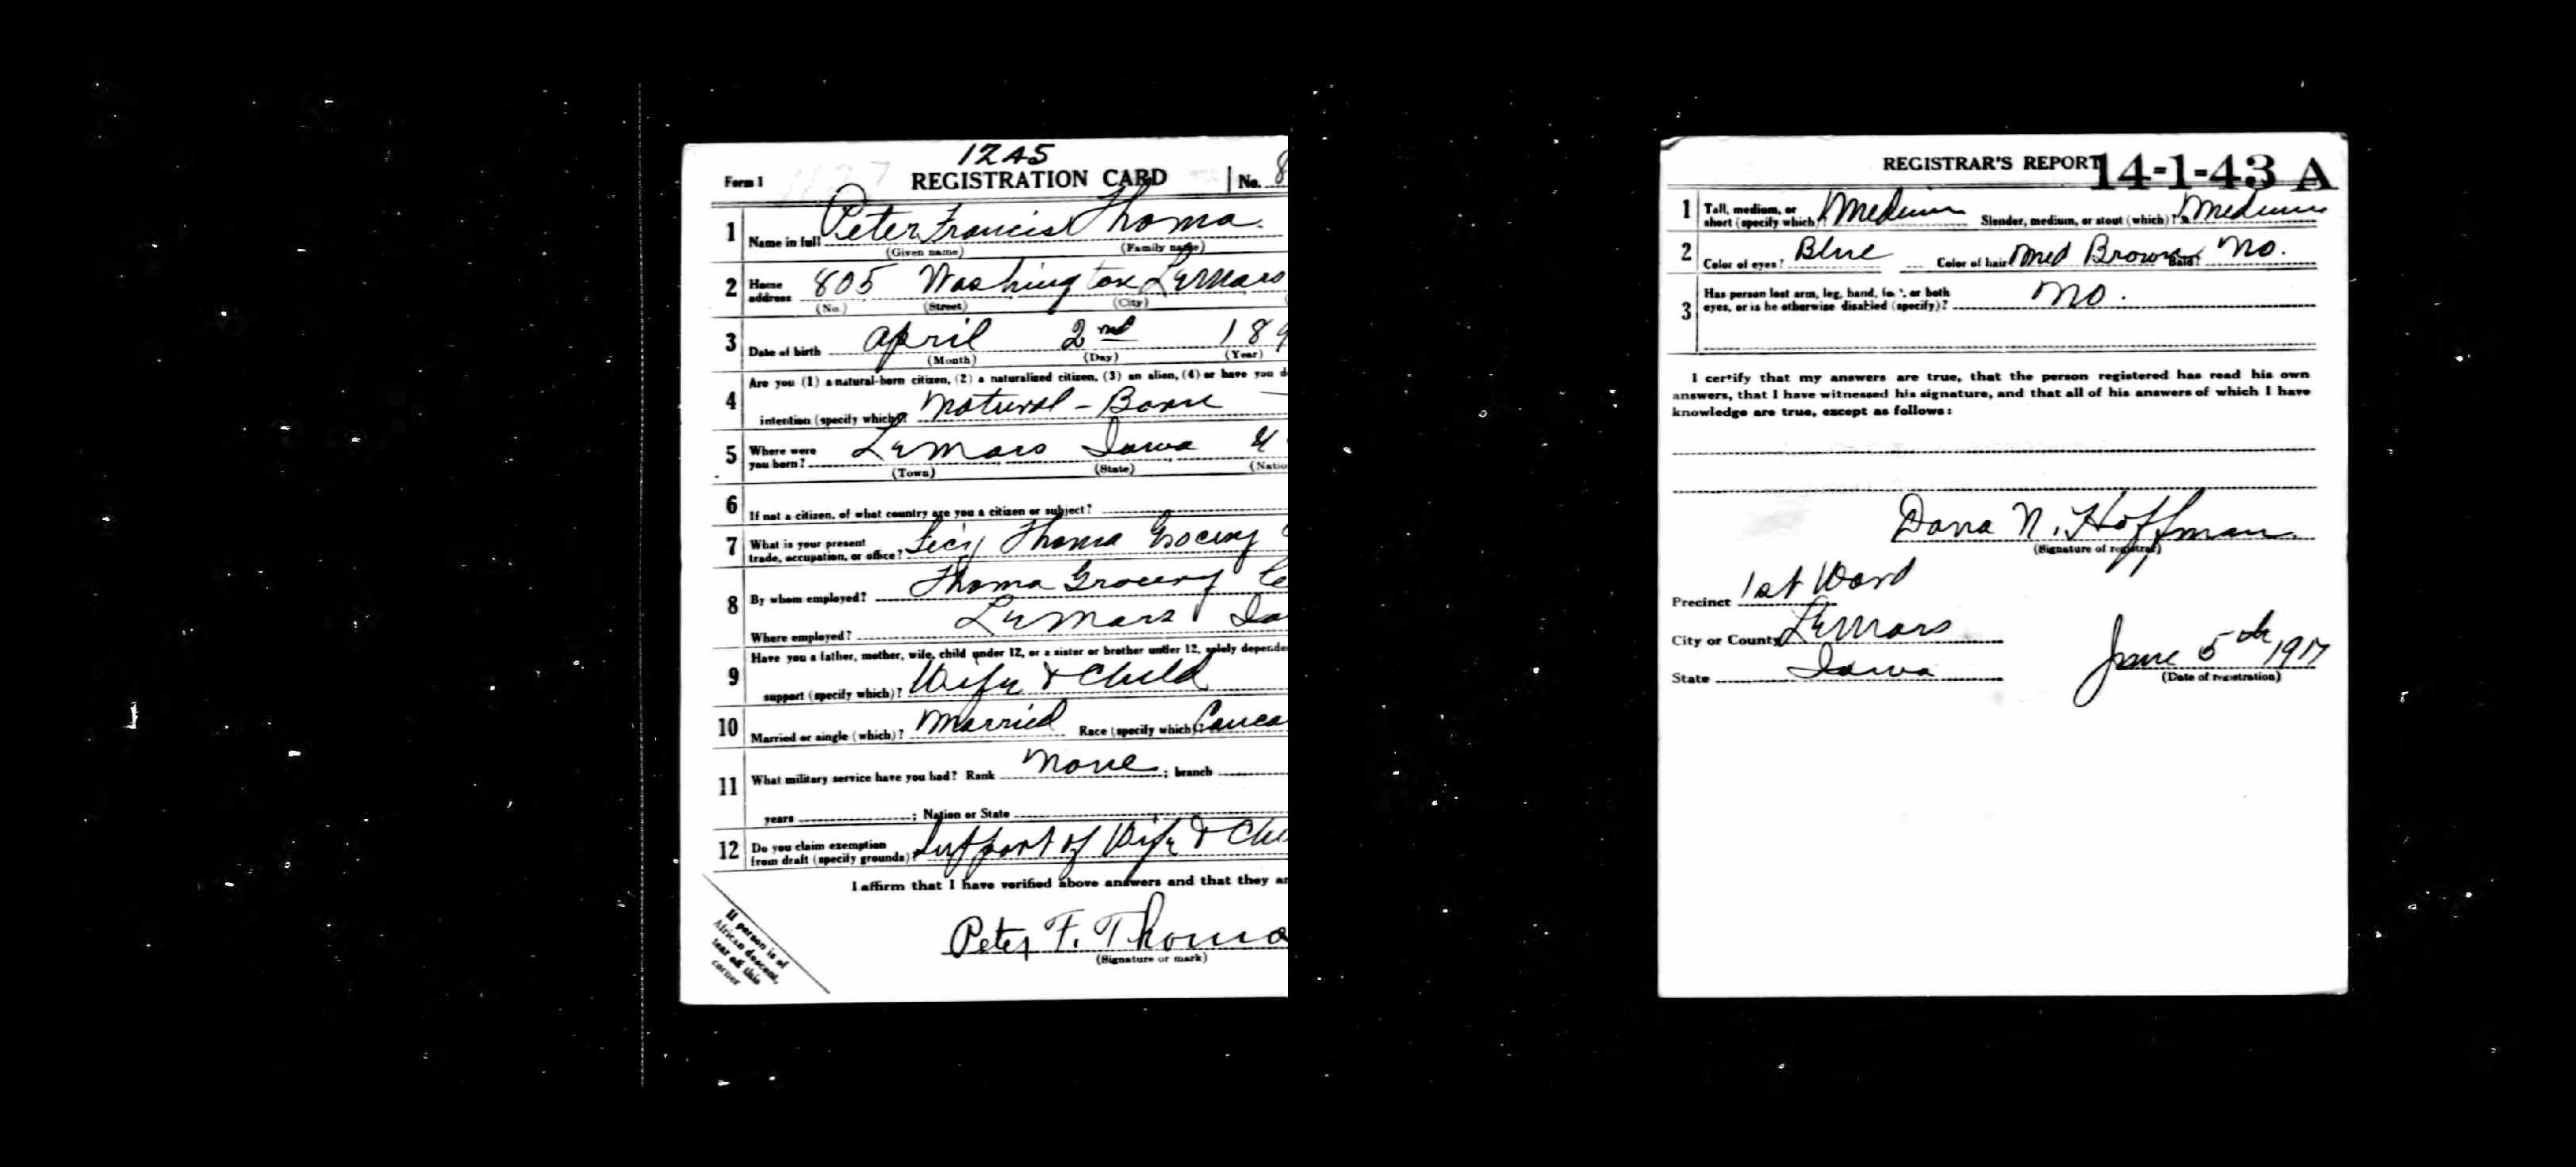 1245
Form 1 REGISTRATION CARD No. 8
1 Name in full Peter Francis Thoma.
(Given name) (Family name)
2 Home address 805 Washington LeMars
(No.) (Street) (City)
3 Date of birth April 2nd 189
(Month) (Day) (Year)
Are you (1) a natural-born citizen, (2) a naturalized citizen, (3) an alien, (4) or have you d
4 intention (specify which)? Natural-Born
5 Where were you born? LeMars Iowa U
(Town) (State) (Natio
6 If not a citizen, of what country are you a citizen or subject?
7 What is your present trade, occupation, or office? Secy Thoma Grocery
8 By whom employed? Thoma Grocery Co
Where employed? LeMars Io
Have you a father, mother, wife, child under 12, or a sister or brother under 12, solely depende
9 support (specify which)? Wife & Child
10 Married or single (which)? Married Race (specify which)? Cauca
11 What military service have you had? Rank None ; branch
years ; Nation or State
12 Do you claim exemption from draft (specify grounds)? Support of Wife & Chi
I affirm that I have verified above answers and that they ar
Peter F. Thoma
(Signature or mark)
If person is of
African descent,
tear off this
corner
REGISTRAR'S REPORT 14-1-43 A
1 Tall, medium, or short (specify which)? Medium Slender, medium, or stout (which)? Medium
2 Color of eyes? Blue Color of hair? Med Brown Bald? No.
3 Has person lost arm, leg, hand, foot, or both eyes, or is he otherwise disabled (specify)? No.
I certify that my answers are true, that the person registered has read his own
answers, that I have witnessed his signature, and that all of his answers of which I have
knowledge are true, except as follows:
Dana N. Hoffman
(Signature of registrar)
Precinct 1st Ward
City or County LeMars
State Iowa
June 5th 1917
(Date of registration)